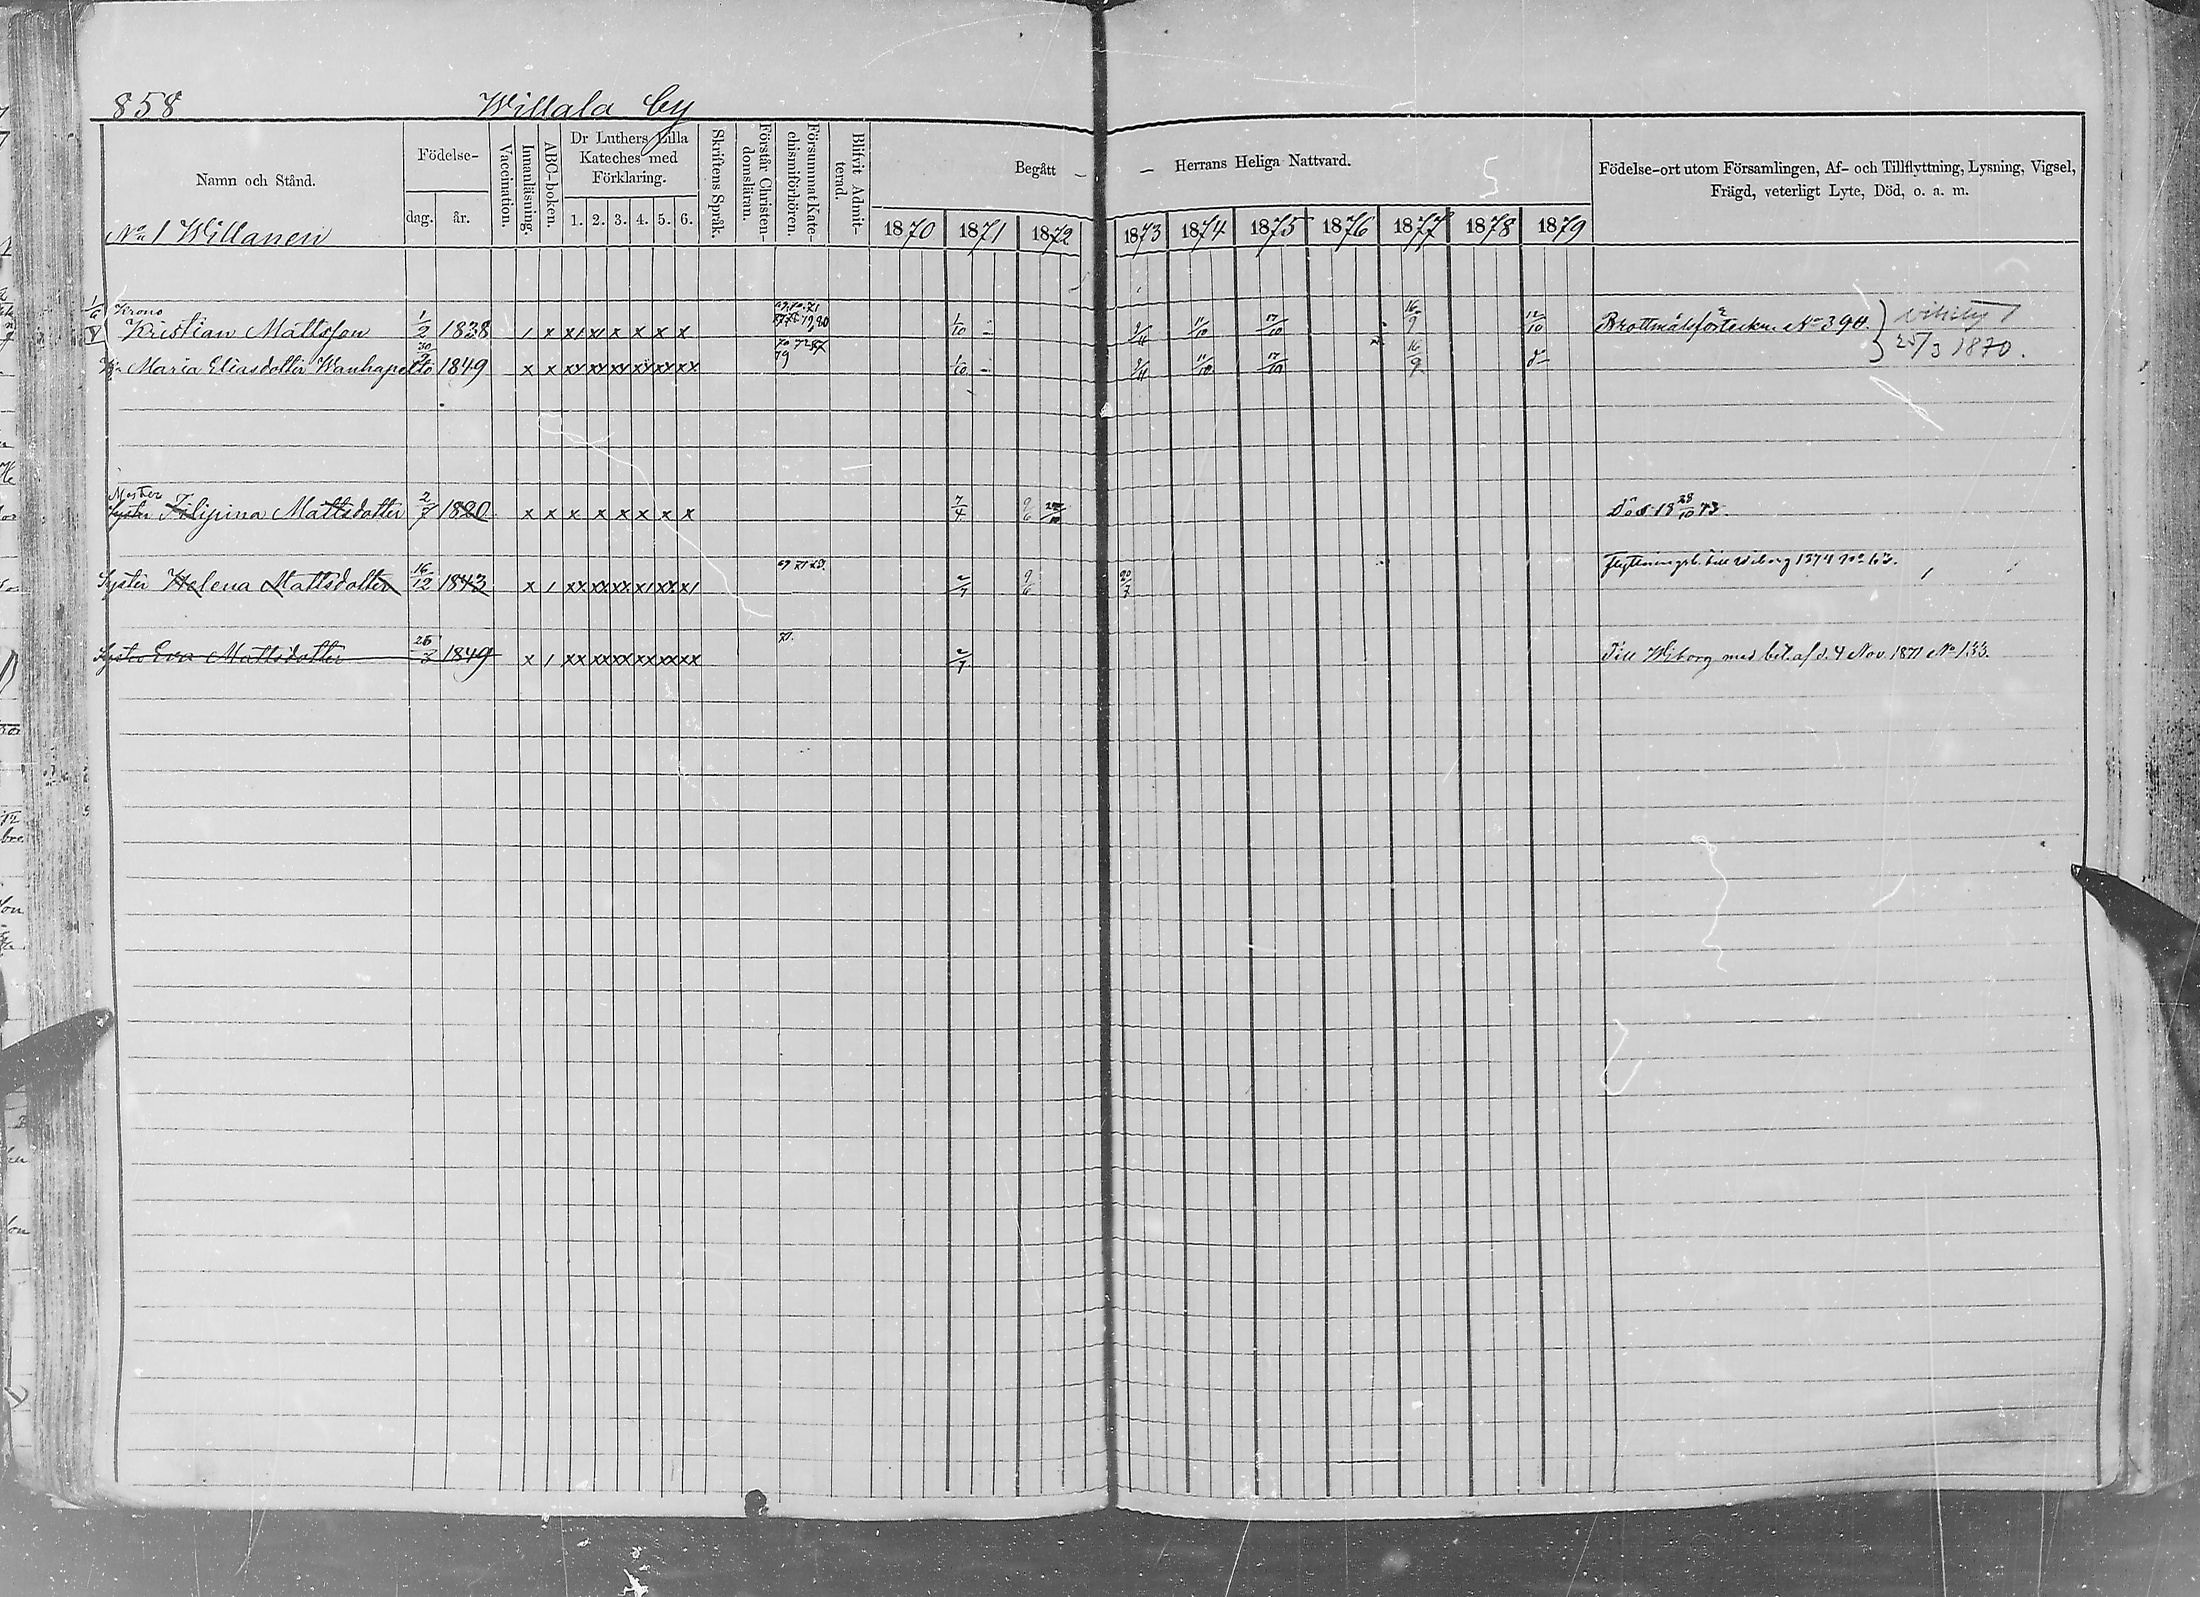 858 Willala by
Namn och Stånd.
Födelse-
dag. år.
Vaccination.
Innanläsning.
ABC-boken.
Dr Luthers Lilla
Kateches med
Förklaring.
1. 2. 3. 4. 5. 6.
Skriftens Språk.
Förstår Christen-
domsläran.
Försummat Kate-
chismiförhören.
Blifvit Admit-
terad.
Begått Herrans Heliga Nattvard.
1870 1871 1872 1873 1874 1875 1876 1877 1878 1879
Födelse-ort utom Församlingen, Af- och Tillflyttning, Lysning, Vigsel,
Frägd, veterligt Lyte, Död, o. a. m.
No 1 Willanen
1/6 Krono
Kristian Mattsson 1/2 1838 1/10 11/10 17/10 16/9 12/10 Brottmålsförteckn. No 390.
Maria Eliasdotter Wanhapelto 1849 1/10 11/10 17/10 16/9 25/3 1870.
Moster
Syster Filipina Mattsdotter 2/7 1820 7/4 9/6 Död 18 28/10 73.
Syster Helena Mattsdotter 16/12 1843 2/7 9/6 20/7 Flyttningsb. till Wiborg 1874 No 63.
Syster Eva Mattsdotter 26/3 1849 71. 2/7 Till Wiborg med bet. af d. 4 Nov. 1871 No 133.